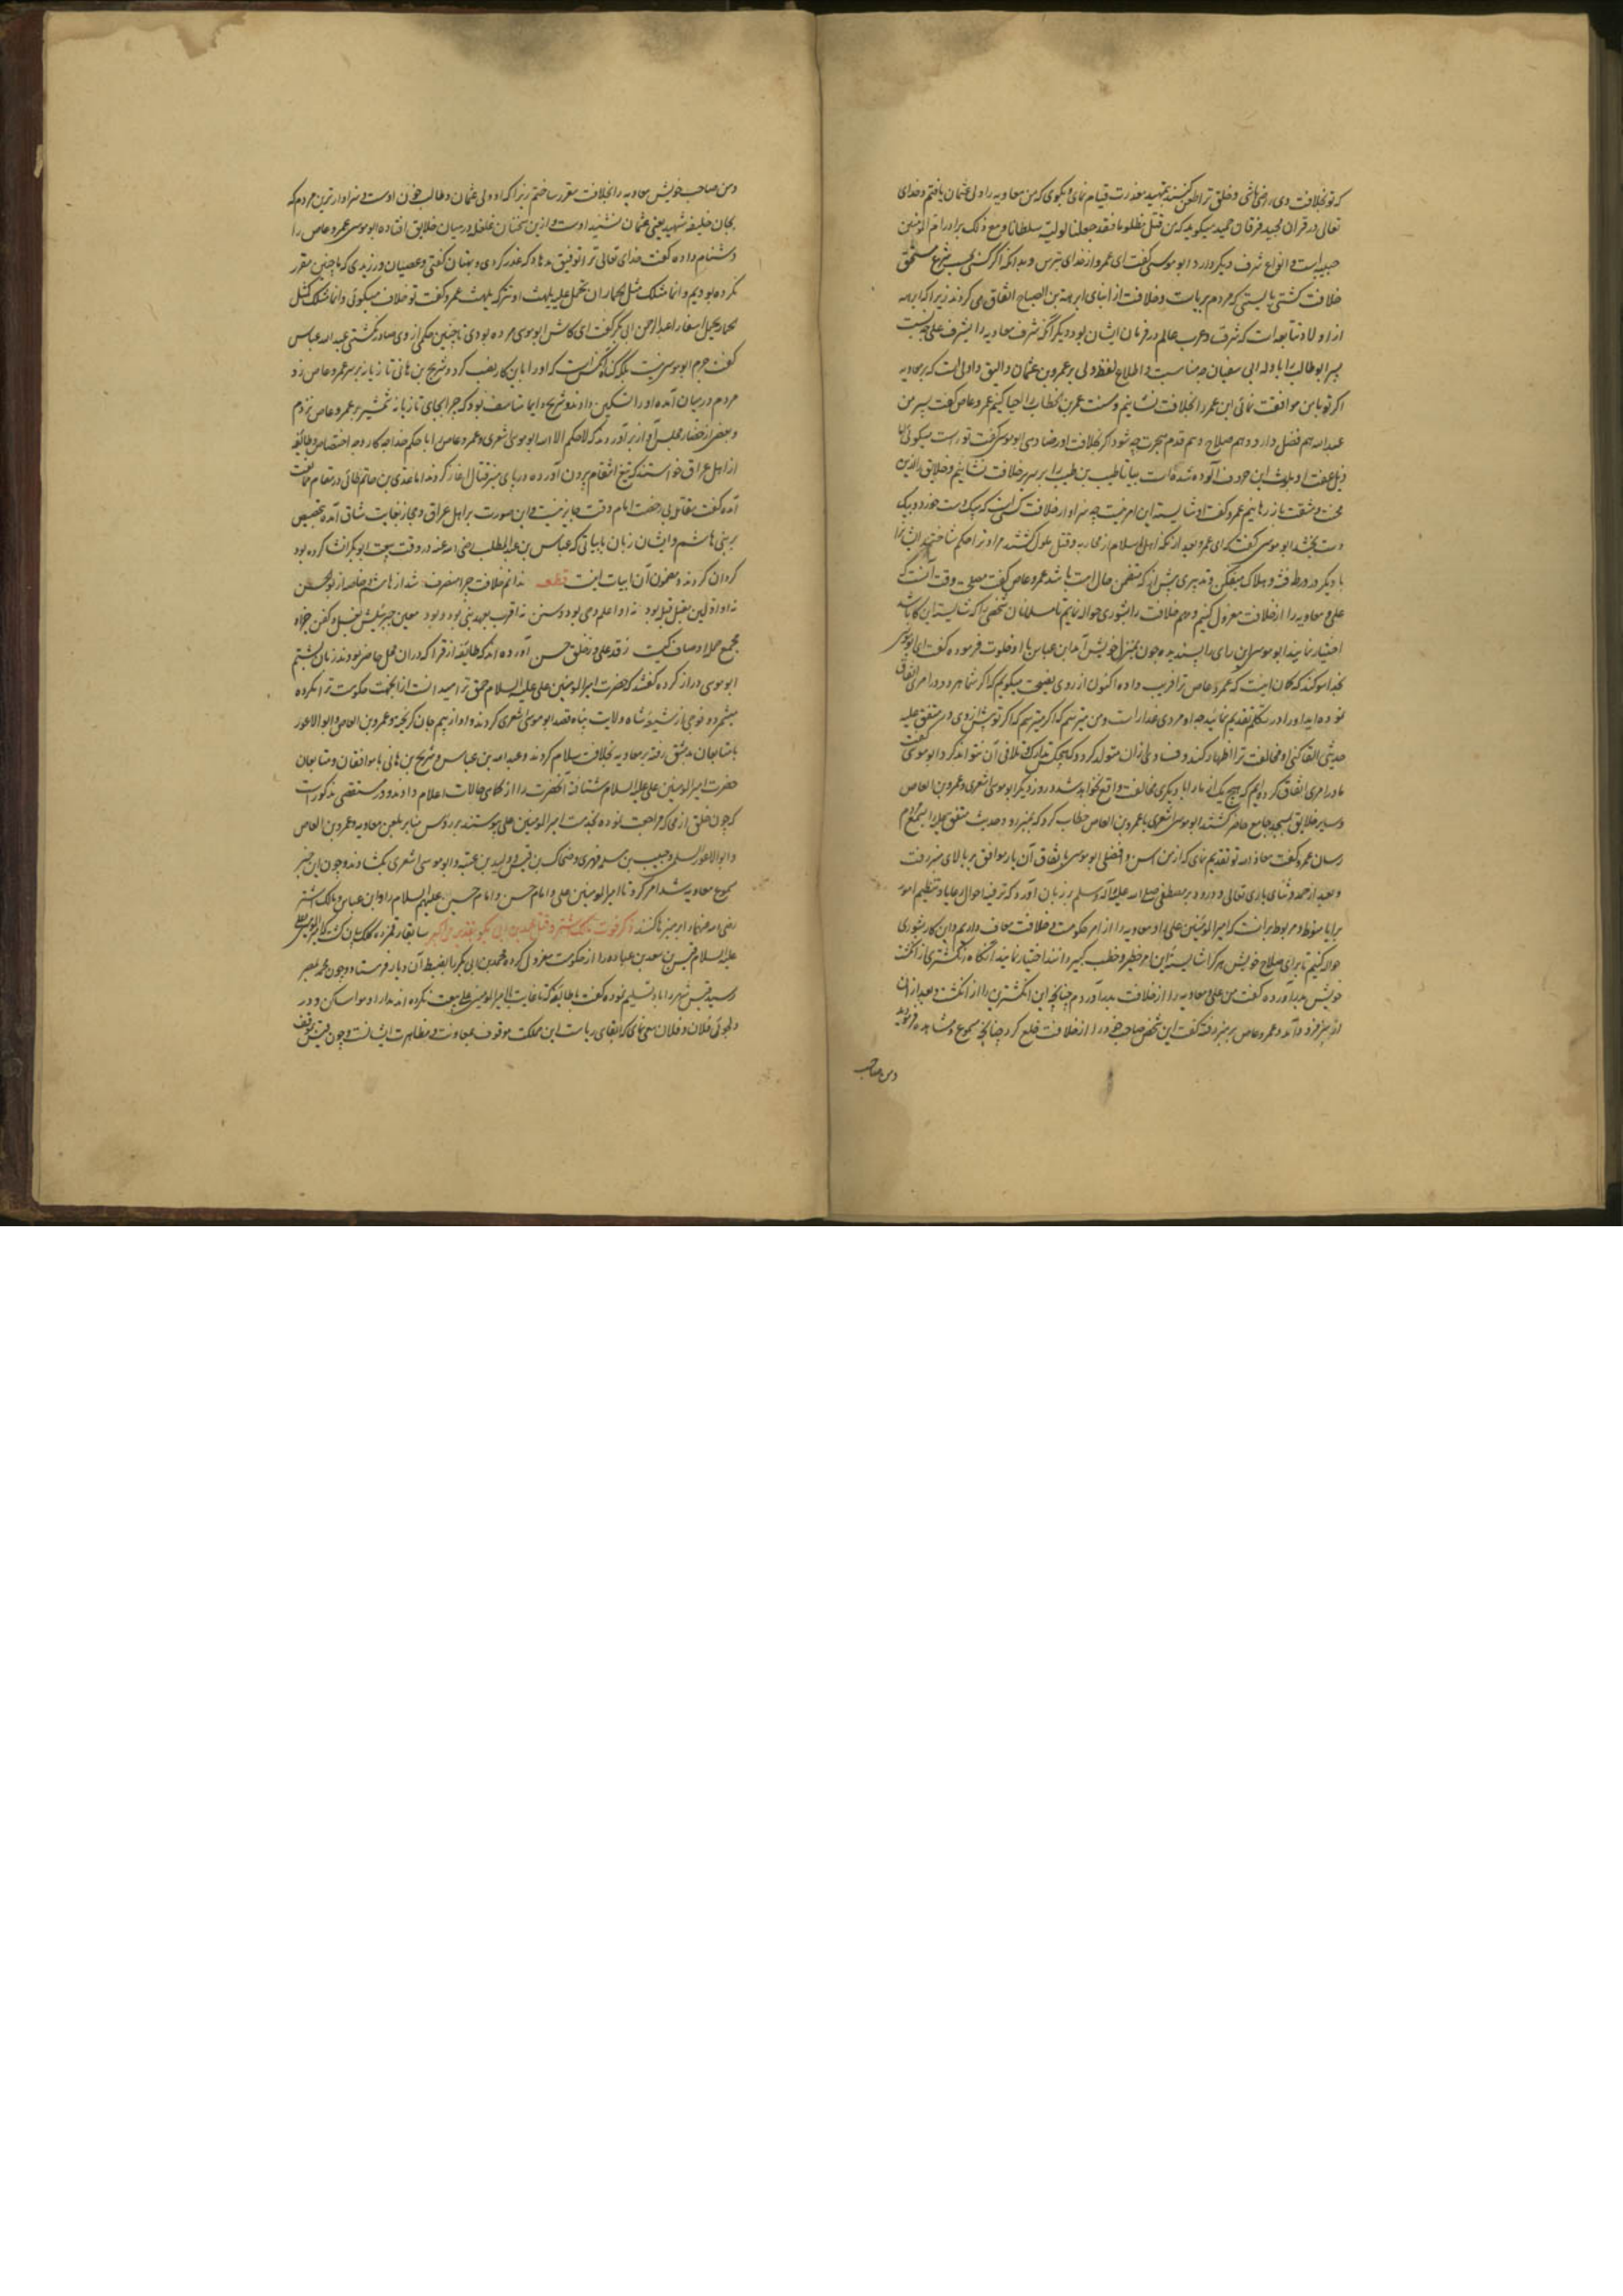 که تو بخلافت وی راضی باشی و خلق ترا طعن کنند بتمهید معذرت قیام نمای و بکوی که من معاویه را ولی عثمان یافتم و خدای
تعالی در قران مجید و فرقان حمید میکوید که من قتل مظلوما فقد جعلنا لولیه سلطانا و مع ذلک برادر ام المومنین
حبیبه است و انواع شرف دیکر دارد ابو موسی کفت ای عمرو از خدای بترس و بدانکه اکر کسی بشرع مستحق
خلافت کشتی بایستی که مردم بر ریاست و خلافت از ابنای ابرهه بن الصباح اتفاق می کردند زیرا که ابرهه
از اولاد تبابعه است که شرق و غرب عالم در فرمان ایشان بود و دیکر آنکه شرف معاویه را بشرف علی چه نسبت
پسر ابوطالب را با وله ابی سفیان چه مناسبت و اطلاع لفظ ولی بر عمرو بن عثمان الیق و اولی است که بر معاویه
اکر تو با من موافقت نمائی ابن عمر را بخلافت نشانیم و سنت عمر بن الخطاب را احیا کنیم عمرو عاص کفت پسر من
عبدالله هم فضل دارد و هم صلاح و هم قدم هجرت چه شود اکر بخلافت او رضا دهی ابو موسی کفت تو راست میکوئی اما
ذیل عفت او بلوث این حروف آلوده شده است بیا تا طیب بن طیب را بر سریر خلافت نشانیم و خلایق را ازین
محنت و مشقت باز رهانیم عمرو کفت او شایسته این امر نیست چه سزاوار خلافت کسی است که بیک دست خورد و بیک
دست بخشد ابو موسی کفت که ای عمرو بعد از انکه اهل اسلام از محاربه و قتل ملول کشتند مرا و ترا حکم ساختند ایشانرا
بار دیکر در ورطه فتنه و هلاک میفکن و تدبیری پیش آر که متضمن حال امت باشد عمرو عاص کفت مصلحت وقت آنست که
علی و معاویه را از خلافت معزول کنیم و مهم خلافت را بشوری حواله نمایم تا مسلمانان شخصی را که شایسته این کار باشد
اختیار نمایند ابو موسی این رای را پسندیده چون بمنزل خویش آمد ابن عباس با او خلوت فرموده کفت ای ابو موسی
بخدا سوکند که کمان اینست که عمرو عاص ترا فریب داده اکنون از روی نصیحت میکویم که اکر شما هر دو در امری اتفاق
نموده اید او را در تکلم تقدیم نمائید چه او مردی غدار است و من میترسم که اکر تو پیش از وی در متفق علیه
حدیثی القا کنی او مخالفت ترا اظهار کند و فساد ازان متولد کردد که هیچکس تدارک و تلافی آن نتواند کرد ابو موسی کفت
ما در امری اتفاق کرده ایم که هیچ یک از ما را با دیکری مخالفت واقع نخواهد شد و روز دیکر ابو موسی اشعری و عمرو بن العاص
و سایر خلایق بمسجد جامع حاضر کشتند ابو موسی اشعری با عمرو بن العاص خطاب کرد که بمنبر رو و حدیث متفق علیه را بسمع مردم
رسان عمرو کفت معاذ الله تو تقدیم نمای که از من اسن و افضلی ابو موسی باتفاق آن یار موافق بر بالای منبر رفت
و بعد از حمد و ثنای باری تعالی و درود بر مصطفی صلی الله علیه و آله و سلم بر زبان آورد که ترفیه احوال رعایا و تنظیم امور
برایا منوط و مربوط بر انست که امیر المومنین علی و معاویه را از امر حکومت و خلافت معاف داریم و این کار بشوری
حواله کنیم تا برای صلاح خویش هر کرا شایسته این امر خطیر و خطب کبیر دانند اختیار نمایند آنکاه انکشتری از انکشت
خویش بدر آورده کفت من علی و معاویه را از خلافت بدر آوردم چنانچه این انکشترین را از انکشت و بعد از ان
از منبر فرود آمد و عمرو عاص بر منبر رفته کفت این شخص صاحب خود را از خلافت خلع کرد چنانچه مسموع و مشاهده فرمودید
و من صاحب
و من صاحب خویش معاویه را بخلافت مقرر ساختم زیرا که او ولی عثمان و طالب خون اوست و سزاوارترین مردم که
بجای خلیفه شهید یعنی عثمان نشیند اوست و ازین سخنان غلغله در میان خلایق افتاده ابو موسی عمرو عاص را
دشنام داده کفت خدای تعالی ترا توفیق مدهاد که غدر کردی و بهتان کفتی و عصیان ورزیدی که ما چنین مقرر
نکرده بودیم و انما مثلک مثل الحمار ان تحمل علیه یلهث او تترکه یلهث عمرو کفت تو خلاف میکوئی و انما مثلک کمثل
الحمار یحمل اسفارا عبدالرحمن ابی بکر کفت ای کاش ابو موسی مرده بودی تا چنین حکمی از وی صادر نکشتی عبدالله عباس
کفت جرم ابو موسی نیست بلکه کناه آنکس است که او را باین کار نصب کرد و شریح بن هانی تازیانه بر سر عمرو عاص زد
مردم در میان آمده او را تسکین دادند و شریح دایما تاسف نمود که چرا بجای تازیانه شمشیر بر عمرو عاص نزدم
و بعضی از حضار مجلس آواز بر آوردند که لا حکم الا لله ابو موسی اشعری و عمرو عاص را با حکم خدا چه کار و چه اختصاص و طایفه
از اهل عراق خواستند که تیغ انتقام بیرون آورده در پای منبر قتال آغاز کردند اما عدی بن حاتم طائی در مقام ممانعت
آمده کفت مقاتله بی رخصت امام وقت جایز نیست و این صورت بر اهل عراق و حجاز بغایت شاق آمده بتخصیص
بر بنی هاشم و ایشان زبان بابیاتی که عباس بن عبدالمطلب رضی الله عنه در وقت بیعت ابوبکر انشا کرده بود
کردان کردند و مضمون آن ابیات اینست قطعه ندانم خلافت چرا منصرف شد از هاشم و خاصه از بوالحسن
نه او اولین مقبل قبله بود نه او اعلم دین بود و سنن نه اقرب بعهد نبی بود و بود معین جبرئیلش بغسل و کفن
مجمع جمله اوصاف کیست ز قدر علی و ز خلق حسن آورده اند که طایفه از قرا که دران محل حاضر بودند زبان بشتم
ابو موسی دراز کرده کفتند که حضرت امیر المومنین علی علیه السلام حمق ترا میدانست از انجهت حکومت ترا مکروه
میشمرد و فوجی از شیعه شاه ولایت پناه قصد ابو موسی اشعری کردند و او از بیم جان کریخته و عمرو بن العاص و ابو الاعور
با متابعان بدمشق رفته بر معاویه بخلافت سلام کردند و عبدالله بن عباس و شریح بن هانی با موافقان و متابعان
حضرت امیر المومنین علی علیه السلام شتافته آنحضرت را از کماهی حالات اعلام دادند و در مستقصی مذکور است
که چون خلق از محاکمه مراجعت نموده بخدمت امیر المومنین علی پیوستند بر رؤس منابر بلعن معاویه و عمرو بن العاص
و ابو الاعور السلمی و حبیب بن مسلمه فهری و ضحاک بن قیس و ولید بن عقبه و ابو موسی اشعری بکشادند و چون این خبر
بسمع معاویه شد امر کرد تا امیر المومنین علی و امام حسن و امام حسین علیهم السلام را و ابن عباس و مالک اشتر
رضی الله عنهما را بر منبر ناسزا کنند ذکر فوت مالک اشتر و قتل محمد بن ابی بکر بتقدیر اکبر سابقا رقمزده کلک بیان کشت که امیر المومنین علی
علیه السلام قیس بن سعد بن عباده را از حکومت معزول کرده محمد بن ابی بکر را بضبط آن دیار فرستاد و چون محمد بمصر
رسید قیس شهر را باو تسلیم نموده کفت با طایفه که تا غایت با امیر المومنین علی بیعت نکرده اند مدارا و مواسا کن و در
دلجوئی فلان و فلان سعی نمای که ابقای ریاست این مملکت موقوف بمعاونت و مظاهرت ایشانست و چون قیس